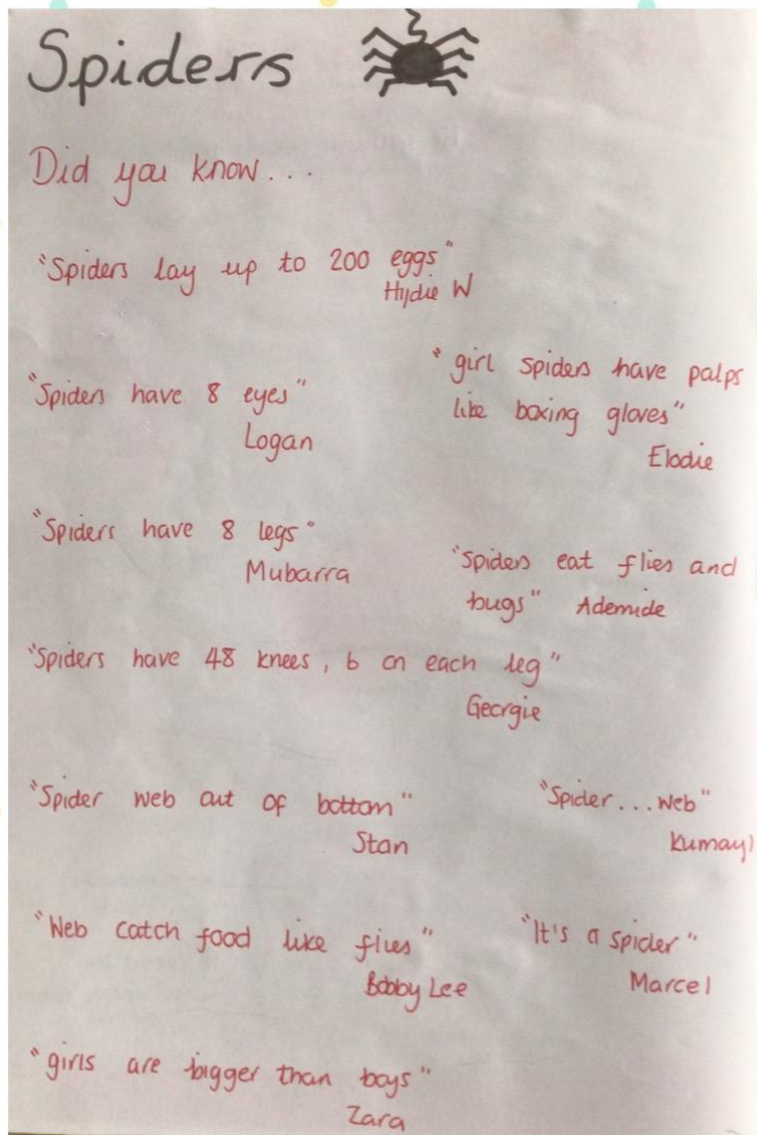 Spiders
Did you know...
"Spiders lay up to 200 eggs"
Hydie W
"Spiders have 8 eyes"
Logan
"girl spiders have palps
like boxing gloves"
Elodie
"Spiders have 8 legs"
Mubarra
"Spiders eat flies and
bugs" Ademide
"Spiders have 48 knees, 6 on each leg"
Georgie
"Spider web out of bottom"
Stan
"Spider...web"
Kumayl
"Web catch food like flies"
Bobby Lee
"It's a spider"
Marcel
"girls are bigger than boys"
Zara